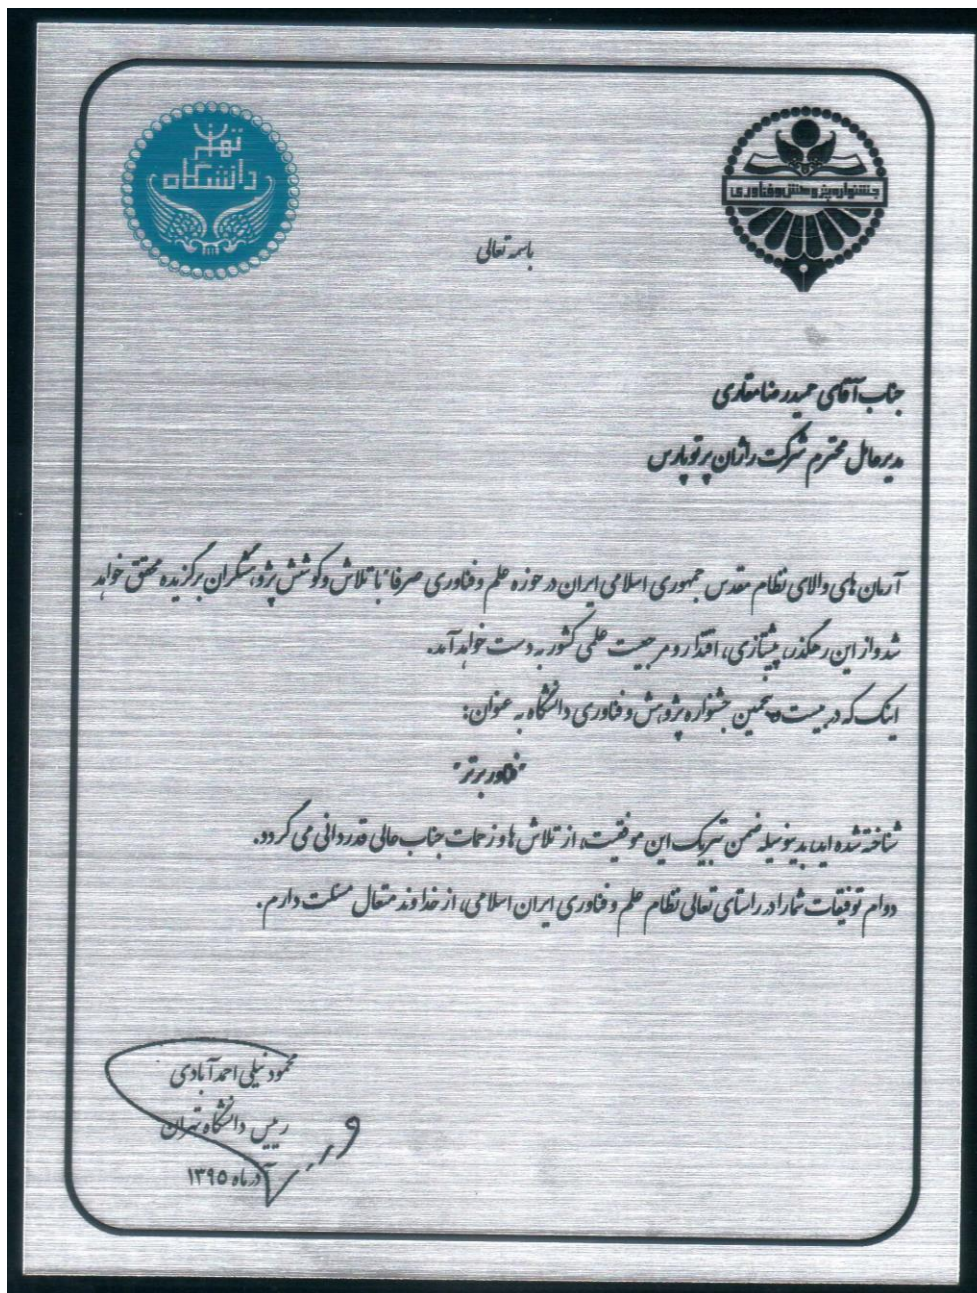 دانشگاه تهران
جشنواره پژوهش و فناوری
باسمه تعالی
جناب آقای حمیدرضا مقاری
مدیرعامل محترم شرکت راژان پرتو پارس
آرمان های والای نظام مقدس جمهوری اسلامی ایران در حوزه علم و فناوری صرفاً با تلاش و کوشش پژوهشگران برگزیده محقق خواهد
شد و از این رهگذر، پیشتازی، اقتدار و مرجعیت علمی کشور به دست خواهد آمد.
اینک که در بیست و پنجمین جشنواره پژوهش و فناوری دانشگاه به عنوان:
"فناور برتر"
شناخته شده اید، بدینوسیله ضمن تبریک این موفقیت، از تلاش ها و زحمات جناب عالی قدردانی می گردد.
دوام توفیقات شما را در راستای تعالی نظام علم و فناوری ایران اسلامی، از خداوند متعال مسئلت دارم.
محمود نیلی احمدآبادی
رییس دانشگاه تهران
آذرماه ۱۳۹۵